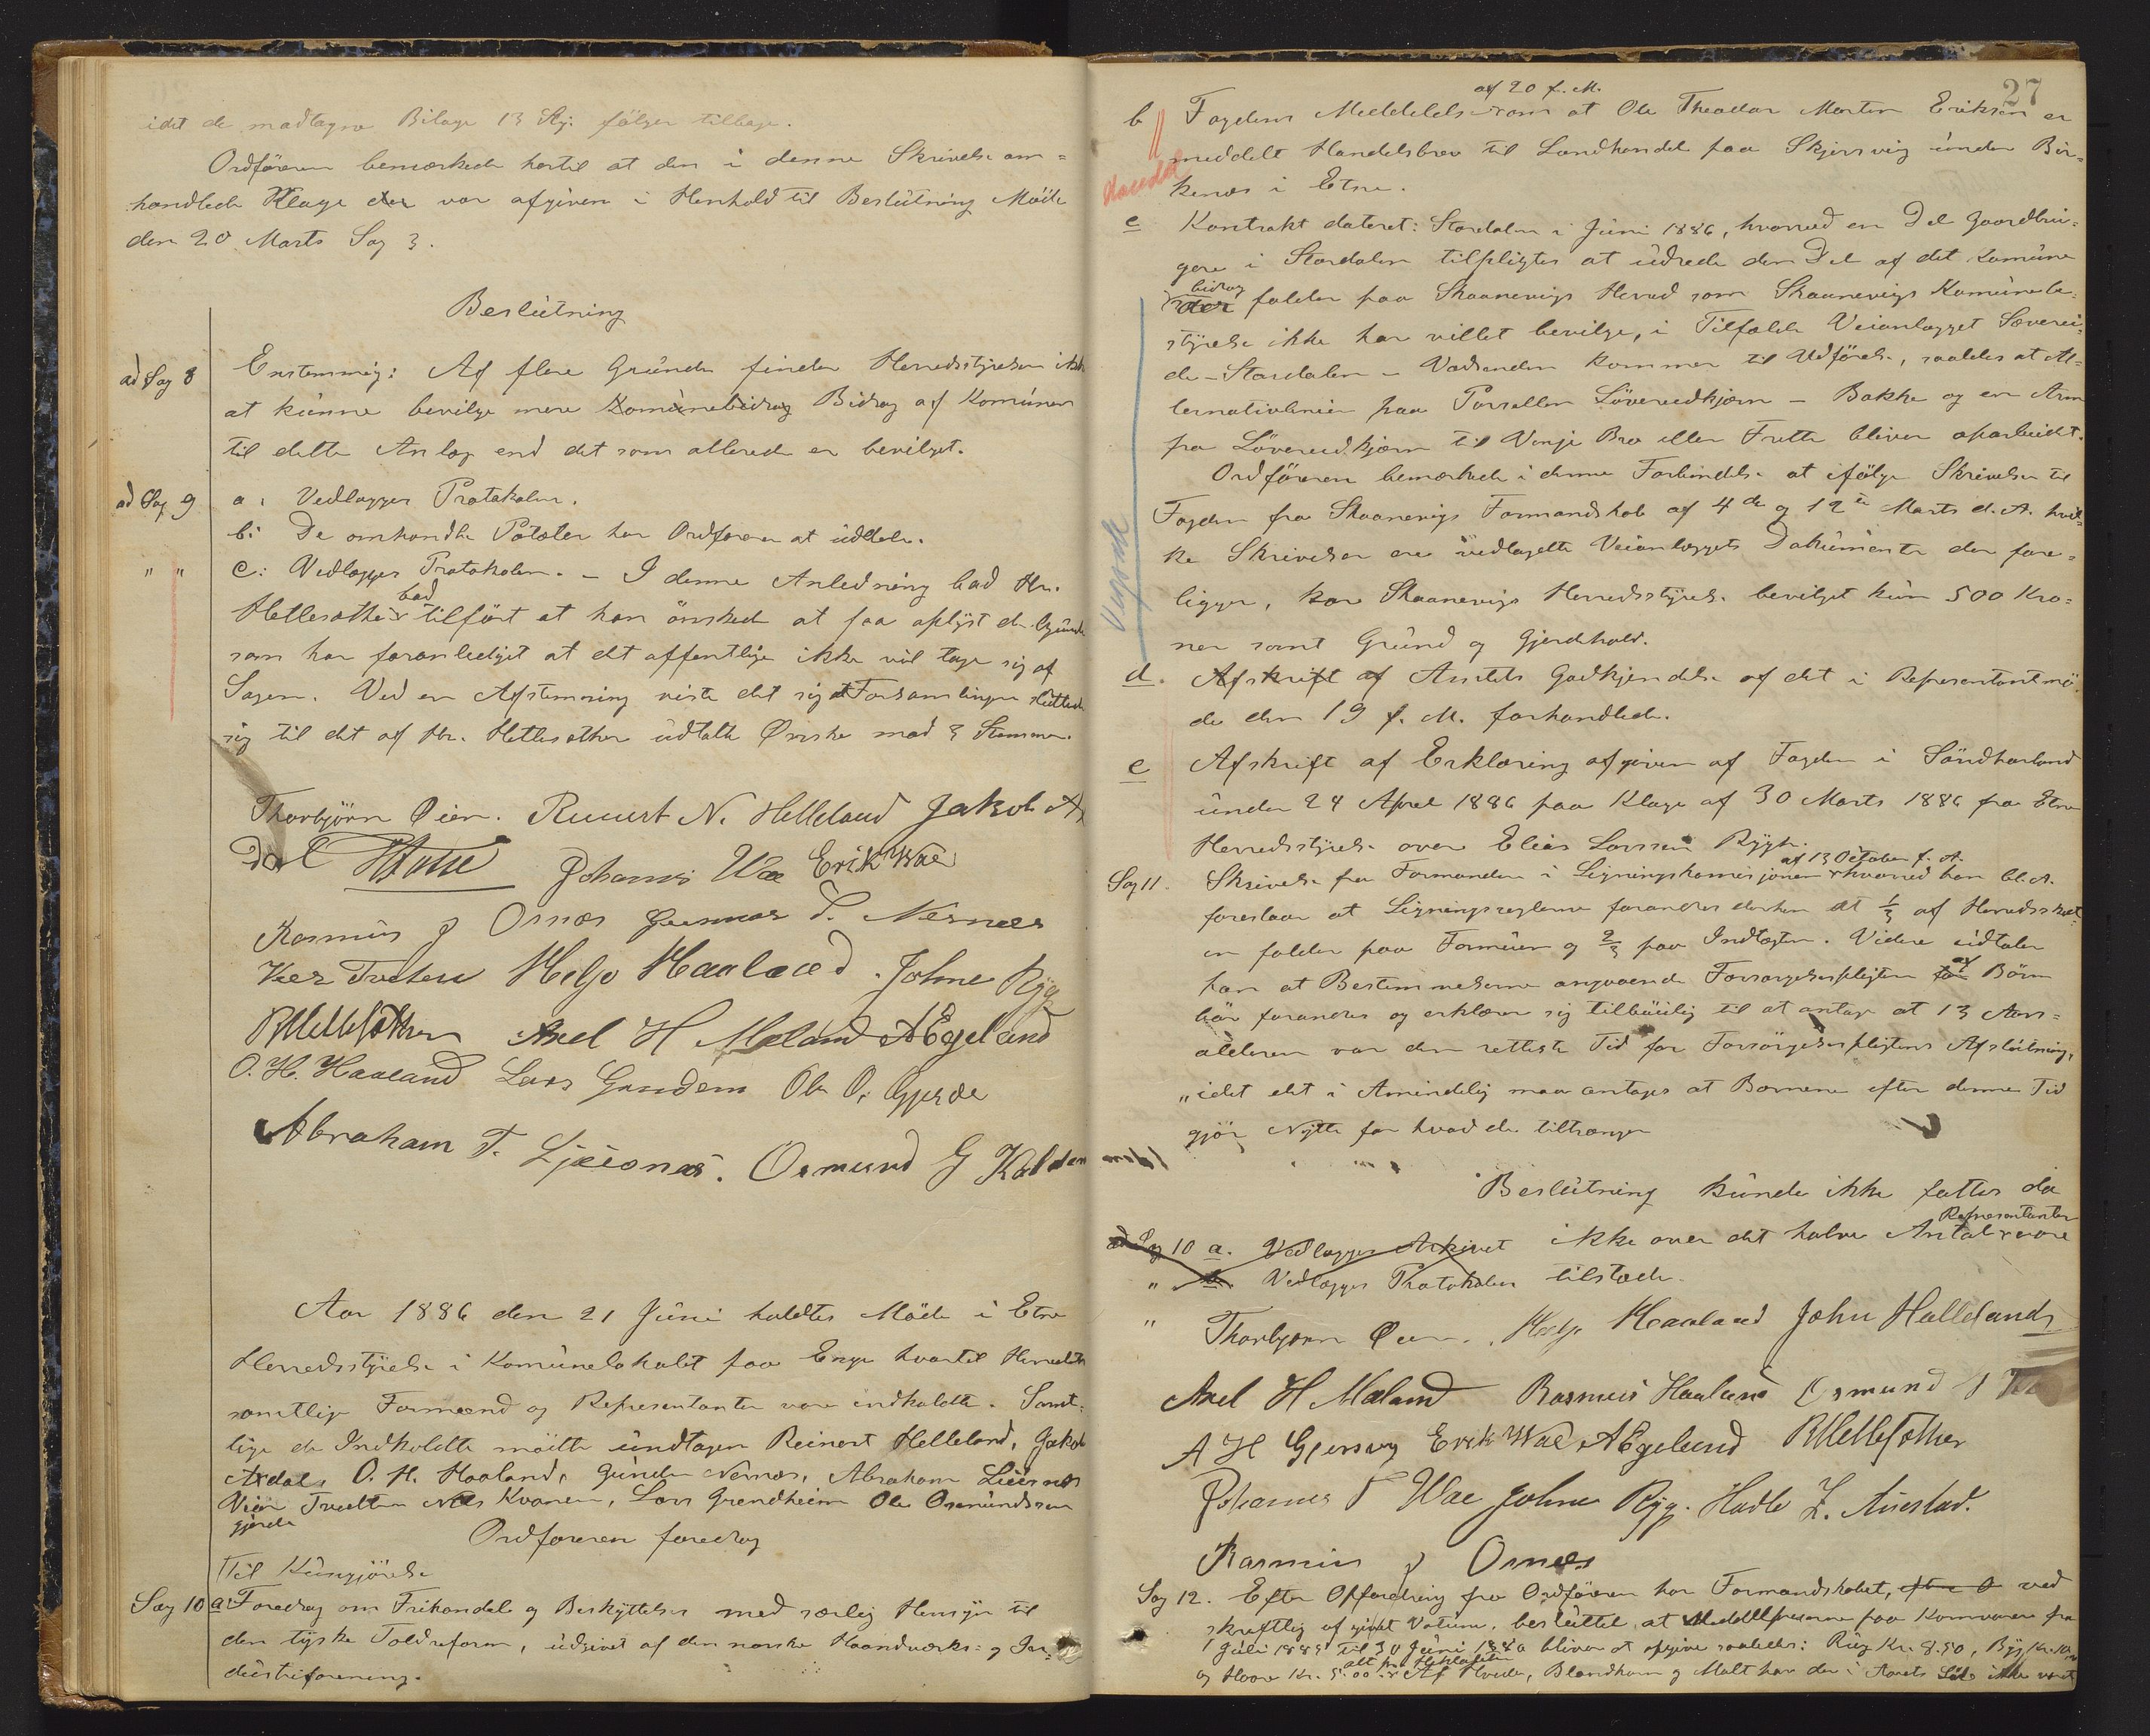 idet de modtagne Bilage 13 Stk: følger tilbage.
Ordføreren bemærkede hertil at den i denne Skrivelse om=
handlede Klage der var afgiven i Henhold til Beslutning Møde
den 20 Marts Sag 3.
Beslutning
ad Sag 8 Enstemmig: Af flere Grunde finder Herredsstyrelsen ikke
at kunne bevilge mere Komunebidrag Bidrag af Komunen
til dette Anlæg end det som allerede er bevilget.
ad Sag 9 a: Vedlægges Protokolen.
b: De omhandlte Potæter har Ordføreren at uddele.
" " c: Vedlægges Protokolen. – I denne Anledning bad Hr.
bad
Hellesæther tilført at han ønskede at faa oplyst de Grunde
som har foranlediget at det offentlige ikke vil tage sig af
Sagen. Ved en Afstemning viste det sig at Forsamlingen sluttede
sig til det af Hr. Hellesæther udtalte Ønske mod 3 Stemmer.
Thorbjørn Øien. Reinert N. Helleland Jakob A
dal Johannes Wae Erik Wae
Rasmus J Osnes Gunnar T. Nernæs
Helje Haaland. Johne Ryg
RHellesæther Axel H Mæland AEgeland
O. H. Haaland Lars Grindem Ole O. Gjerde
Abraham T. Ljeionæs. Osmund G Kalden
Aar 1886 den 21 Juni holdtes Møde i Etne
Herredsstyrelse i Komunelokalet paa Enge hvortil Herredets
samtlige Formænd og Repræsentanter vare indkaldte. Samt=
lige de Indkaldte mødte undtagen Reinert Helleland, Jakob
Axdal, O. H. Haaland, Gunder Nernæs, Abraham Lieionæs
Tvedten Nils Kvamen, Lars Grindheim Ole Osmundsen
gjerde
Ordføreren foredrog
Til Kungjørelse
Sag 10 a: Foredrag om Frihandel og Beskyttelse med særlig Hensyn til
den tyske Toldreform, udgivet af den norske Haandværks- og In=
dustriforening.
27
af 20 f. M.
b Fogdens Meddelelse om at Ole Theodor Morten Eriksen er
meddelt Handelsbrev til Landhandel paa Skjersvig under Bir=
kenæs i Etne.
c Kontrakt dateret: Stordalen i Juni 1886, hvorved en Del Gaardbru=
gere i Stordalen tilpligtes at udrede den Del af det Komune
bidrag
der falder paa Skaanevigs Herred som Skaanevigs Komunebe=
styrelse ikke har villet bevilge, i Tilfælde Veianlægget Sæverei=
de – Stordalen – Vadsenden kommer til Udførelse, saaledes at Al=
ternativlinien paa Parsellen Løvereidkjærn – Bakke og en Arm
fra Løvereidkjærn til Vinje Bro eller Frette bliver oparbeidet.
Ordføreren bemærkede i denne Forbindelse at ifølge Skrivelse til
Fogden fra Skaanevigs Formandskab af 4de og 12te Marts d. A. hvil=
ke Skrivelser ere vedlagte Veianlæggets Dokumenter der fore=
ligger, har Skaanevigs Herredsstyrelse bevilget kun 500 Kro=
ner samt Grund og Gjerdehold.
d. Afskrift af Amtets Godkjendelse af det i Repræsentantmø=
de den 19 f. M. forhandlede.
e Afskrift af Erklæring afgiven af Fogden i Søndhorland
under 24 April 1886 paa Klage af 30 Marts 1886 fra Etne
Herredsstyrelse over Elias Larssen Rygh.
af 13 October f. A.
Sag 11. Skrivelse fra Formanden i Ligningskomisjonen hvorved han bl. A.
foreslaar at Ligningsreglerne forandres derhen at 1/3 af Herredsskat=
en falder paa Formuen og 2/3 paa Indtægten. Videre udtaler
af
han at Bestemmelserne angaaende Forsørgelsespligten for Børn
bør forandres og erklærer sig tilbøielig til at antage at 13 Aars=
alderen var den retteste Tid for Forsørgelsespligtens Afslutning,
"idet det i Amindelig maa antages at Børnene efter denne Tid
gjør Nytte for hvad de tiltrænger
Beslutning kunde ikke fattes da
Repræsentanter
ad Sag 10 a. Vedlægges Arkivet ikke over det halve Antal vare
" b. Vedlægges Protokolen tilstede.
" Thorbjørn Øien. Helje Haaland John Helleland
Axel H Mæland Rasmus Haaland Osmund
A H Gjersvig Erik Wae AEgeland RHellesæther
Johannes T Wae Johne Ryg. Hadle L. Austad.
Rasmus J Osnes
Sag 12. Efter Opfordring fra Ordføreren har Formandskabet, efter O ved
skriftlig afgivet Votum, besluttet at Middelpriserne paa Kornvarer fra
1 Juli 1885 til 30 Juni 1886 bliver at opgive saaledes: Rug Kr. 8.50, Byg Kr.
alt pr. Hektoliter
og Havre Kr. 5.00. Af Hvede, Blandkorn og Malt har der i Aarets Løb ikke været